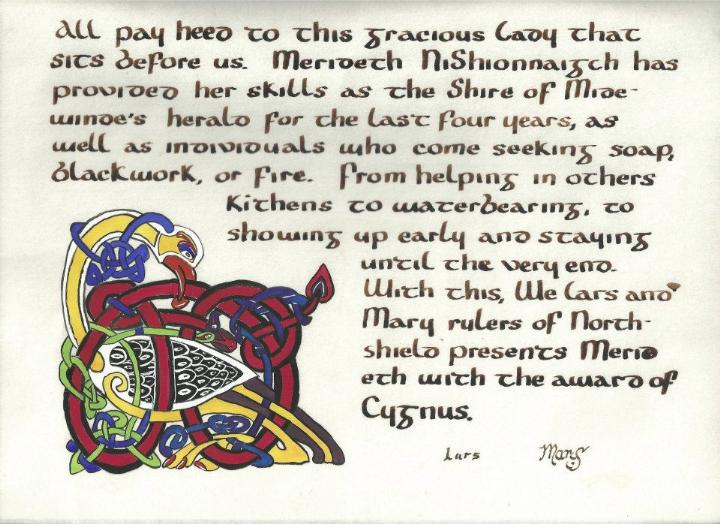 All pay heed to this gracious Lady that
sits before us. Merideth NiShionnaigch has
provided her skills as the Shire of Mide-
winde's herald for the last four years, as
well as individuals who come seeking soap,
blackwork, or fire. From helping in others
kithens to waterbearing, to
showing up early and staying
until the very end.
With this, We Lars and
Mary rulers of North-
shield presents Merid
eth with the award of
Cygnus.
Lars Mary